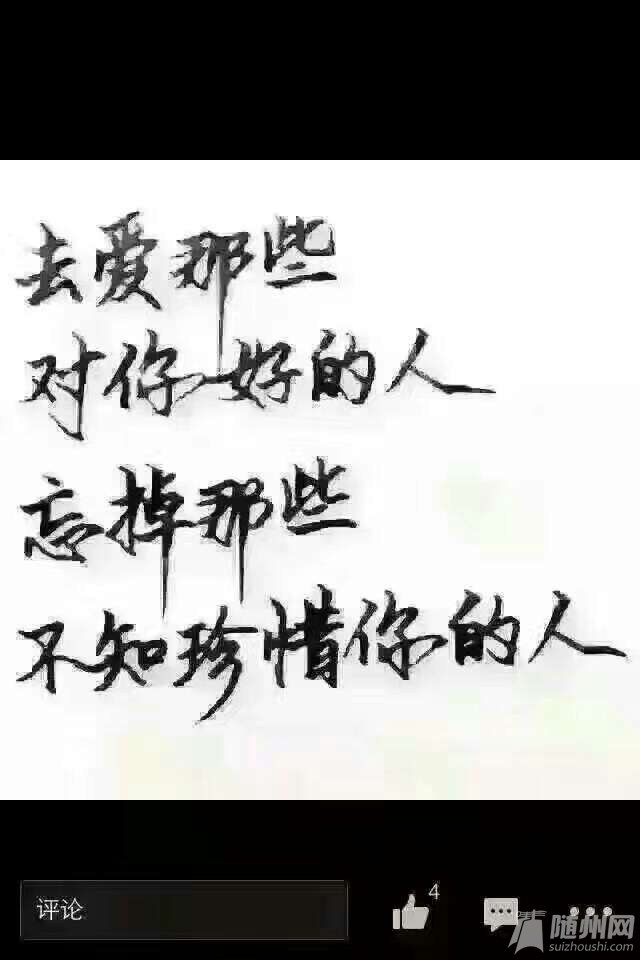 去爱那些
对你好的人
忘掉那些
不知珍惜你的人
评论
4
随州网
suizhoushi.com